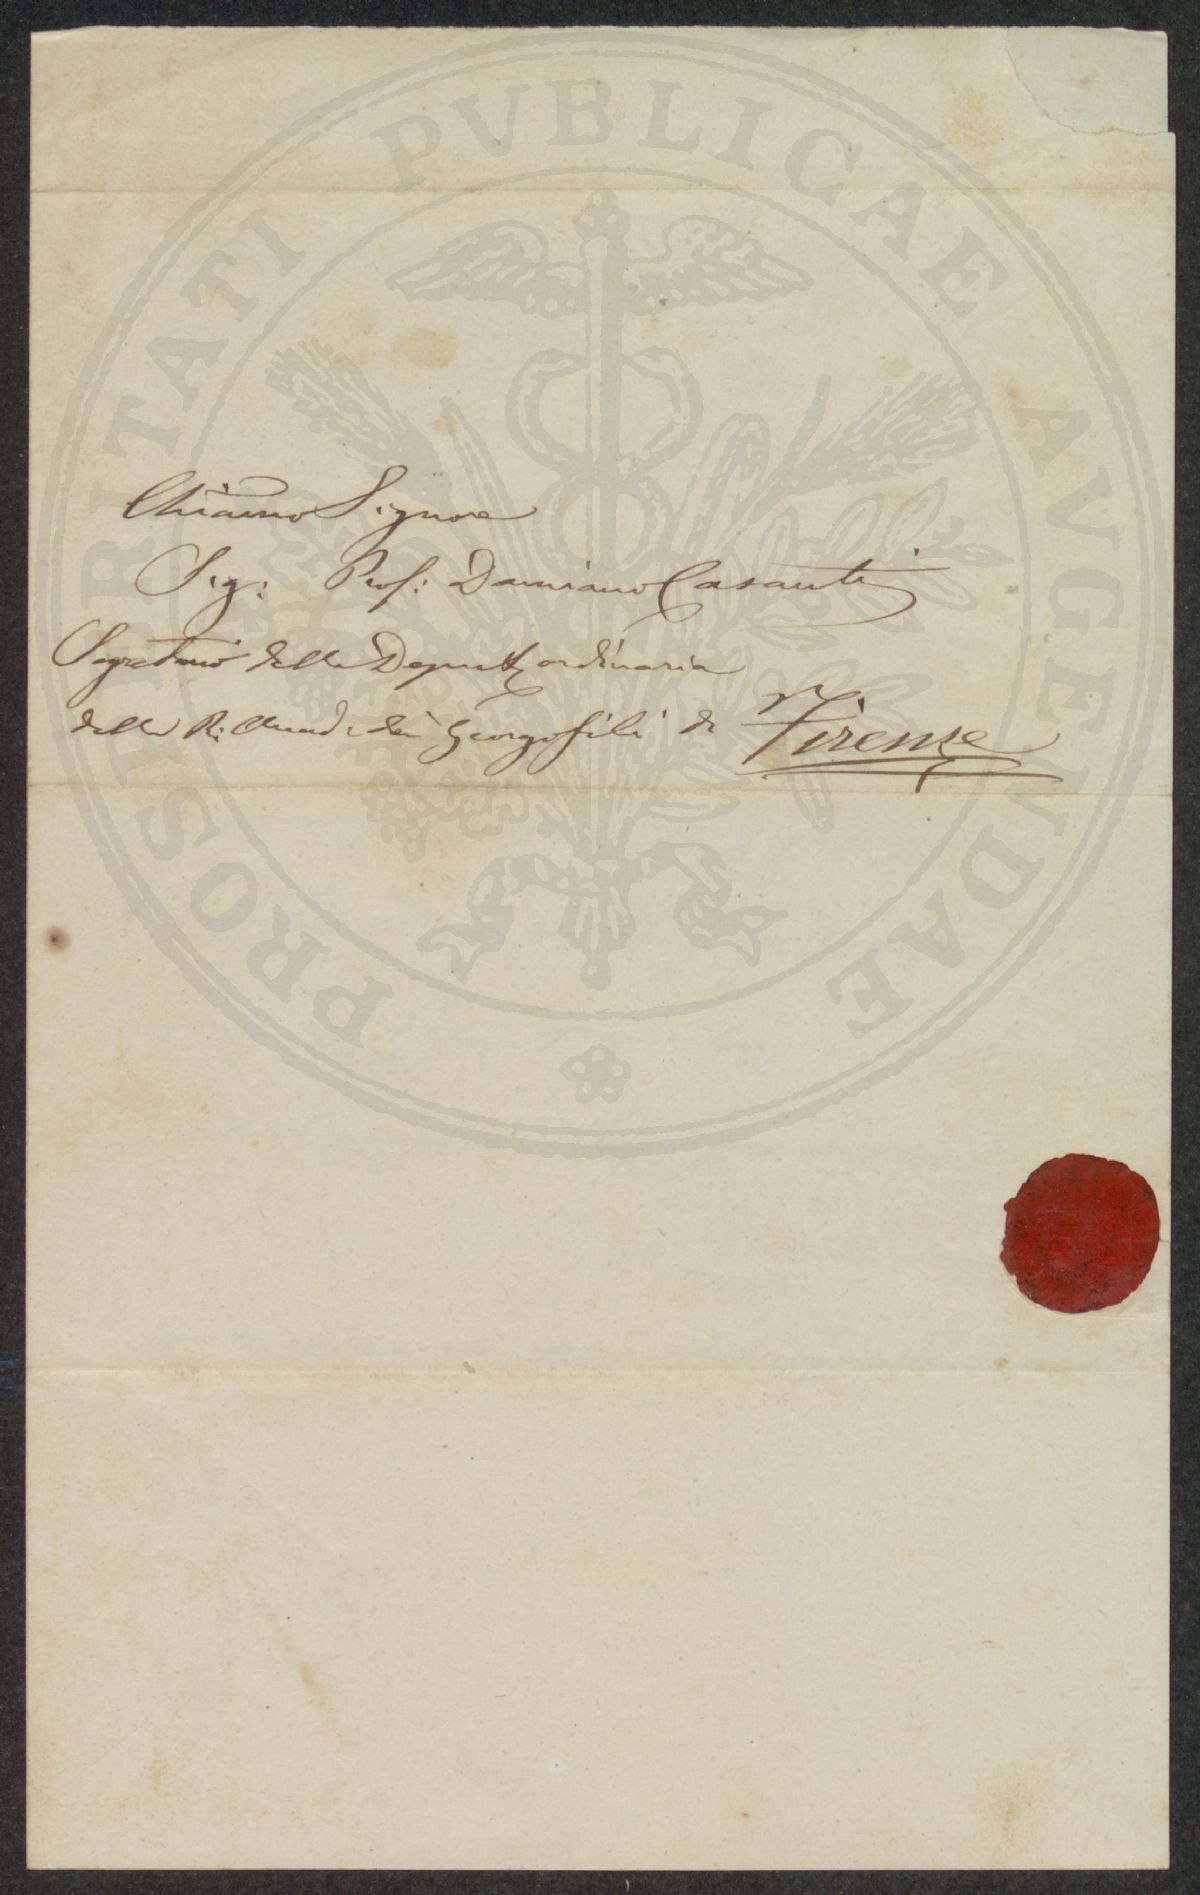 PROSPERITATI PVBLICAE AVGENDAE
Chiarmo Signore
Sig: Prof: Damiano Casanti
Segretario della Deputaz ordinaria
della R: Accad. dei Georgofili di Firenze